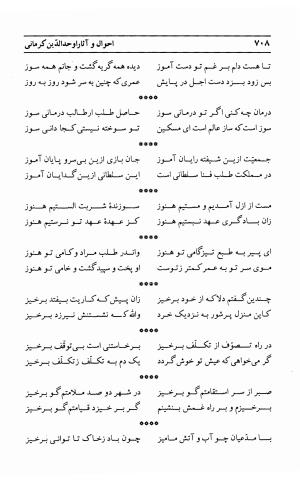 ۷۰۸ احوال و آثار اوحدالدّین کرمانی
تا هست دلم بر غم تو دست آموز دیده همه گریه گشت و جانم همه سوز
بس زود بزد دست اجل در پایش عمری که چنین به سر شود روز به روز
****
درمان چه کنی اگر تو درمانی سوز حاصل طلب ار طالب درمانی سوز
سوز است که ساز عالم است ای مسکین تو سوخته نیستی کجا دانی سوز
****
جمعیّت ازین شیفته رایان آموز جان بازی ازین بی‌سر و پایان آموز
در مملکت طلب فنا سلطانی است این سلطانی ازین گدایان آموز
****
مست از ازل آمدیم و مستیم هنوز سوزندهٔ شربت الستیم هنوز
زان با دگری عهد نبستیم هنوز کز عهدهٔ عهد تو نرستیم هنوز
****
ای پیر به طبع تیزگامی تو هنوز واندر طلب مراد و کامی تو هنوز
موی سر تو به عمر کمتر ز توست او پخت و سپید گشت و خامی تو هنوز
****
چندین گفتم دلا که از خود برخیز زان پیش که کاریت بیفتد برخیز
کاین منزل پرشور به نزدیک خرد والله که نشستنش نیرزد برخیز
****
در راه تصوّف از تکلّف برخیز برخاستنی است بی‌توقّف برخیز
گر می‌خواهی که عیش تو خوش گردد یک دم به تکلّف ز تکلّف برخیز
****
صبر از سر استقامتم گو برخیز در شهر دو صد ملامتم گو برخیز
برخیزم و بر راه غمش بنشینم گر بر خیزد قیامتم گو برخیز
****
با مدّعیان چو آب و آتش مامیز چون باد ز خاک تا توانی برخیز